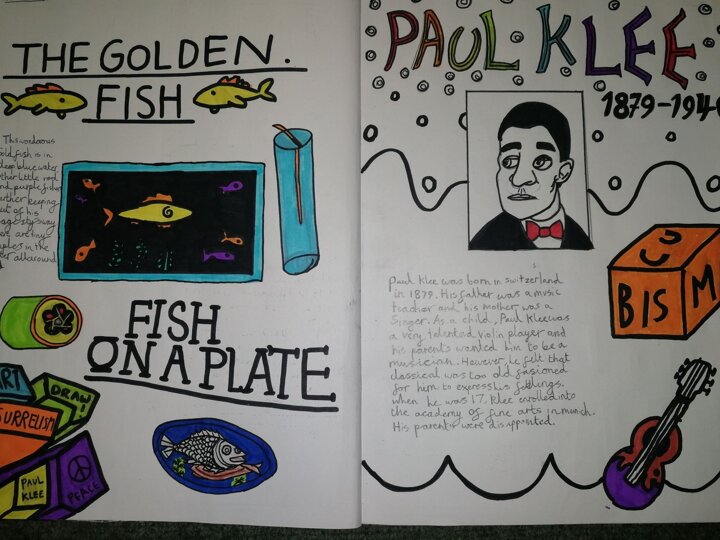 THE GOLDEN.
FISH
This wondorous
gold fish is in
deep blue water
other little red
and purple fishes
further keeping
out of his
way
are tiny
in the
all around
FISH
ON A PLATE
ART
DRAW!
SURRELISM
PAUL
KLEE
PEACE
PAUL KLEE
1879-194
Paul Klee was born in switzerland
in 1879. His father was a music
teachor and his mother was a
singer. As a child, Paul Klee was
a very talented violin player and
his parents wanted him to be a
musician. However, he felt that
classical was too old fasioned
for him to exerss his feelings.
when he was 17, klee enrolled into
the academy of fine arts in munich.
His parents were disappointed.
CU
BISM